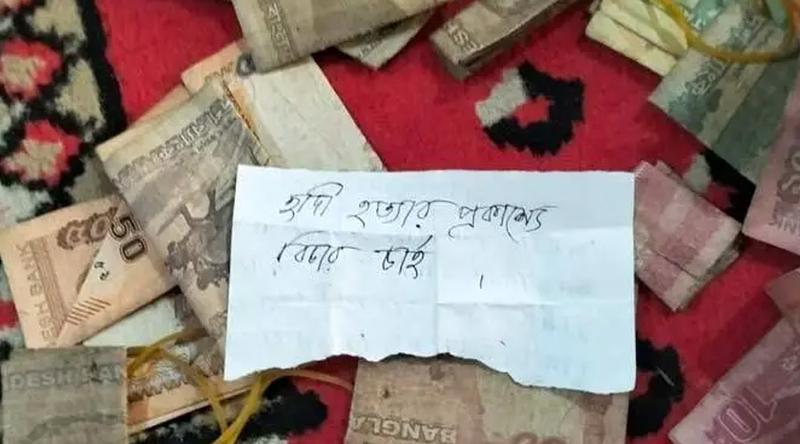 হাদী হত্যার প্রকাশ্যে
বিচার চাই ।
50
DESH BANK
DESH BAN
BANGLA
10